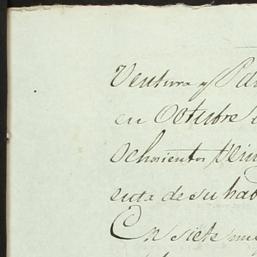 Ventura y Pa
en Octubre
ochocientos vein
nta de su hab
En siete